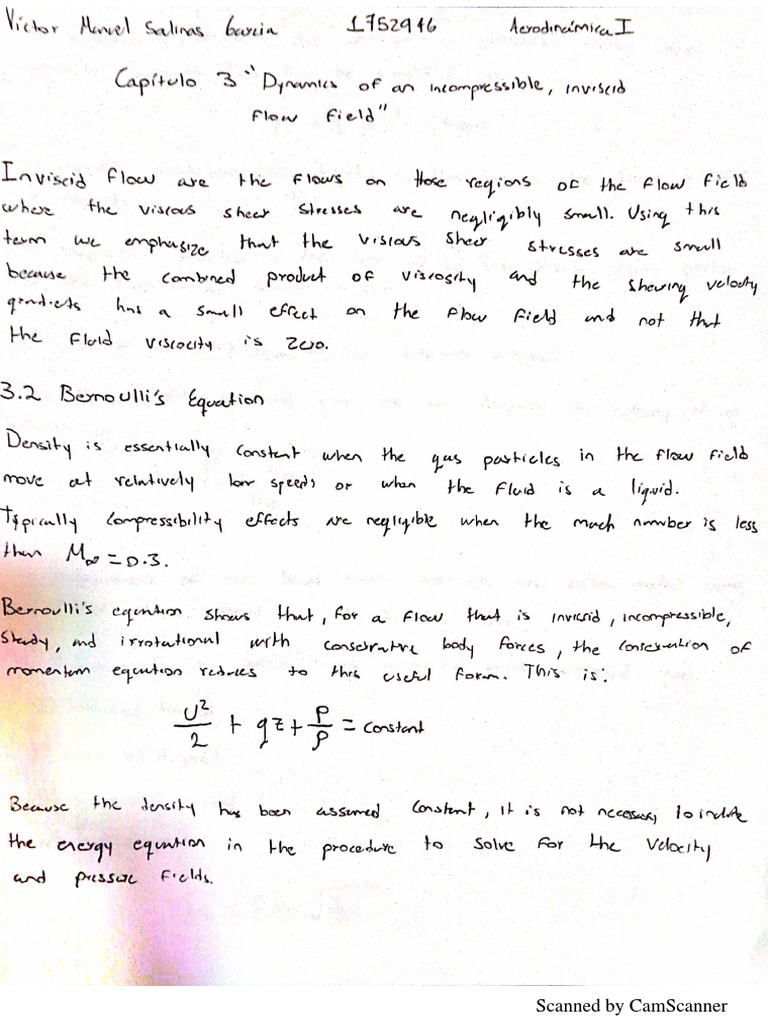 Victor Manuel Salinas Garcia 1752946 Aerodinámica I
Capítulo 3 "Dynamics of an incompressible, inviscid
flow field"
Inviscid flow are the flows on those regions of the flow field
where the viscous sheer stresses are negligibly small. Using this
term we emphasize that the viscous sheer stresses are small
because the combined product of viscosity and the shewing velocity
gradiets has a small effect on the flow field and not that
the fluid viscocity is zero.
3.2 Bernoulli's Equation
Density is essentially constant when the gas particles in the flow field
move at relatively low speeds or when the fluid is a liquid.
Typically compressibility effects are negligible when the mach number is less
then M∞ = 0.3.
Bernoulli's equation shows that, for a flow that is inviscid, incompressible,
steady, and irrotational with conservative body forces, the conservation of
momentum equation reduces to this useful form. This is:
U²/2 + gz + P/ρ = constant
Because the density has been assumed constant, it is not necessary to include
the energy equation in the procedure to solve for the velocity
and pressure fields.
Scanned by CamScanner